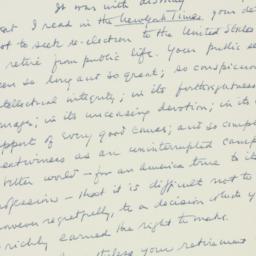 It was with dismay
that I read in the New York Times, your de
not to seek re-election to the United States
retire from public life. Your public se
een so long and so great; so conspicuou
ntellectual integrity; in its forthrightness
urage; in its unceasing devotion; in its
pport of every good cause; and so comple
eatness as an uninterrupted camp
better world – for an America true to it
rofession – that it is difficult not to
even regretfully, to a decision which y
richly earned the right to make.
less your retirement